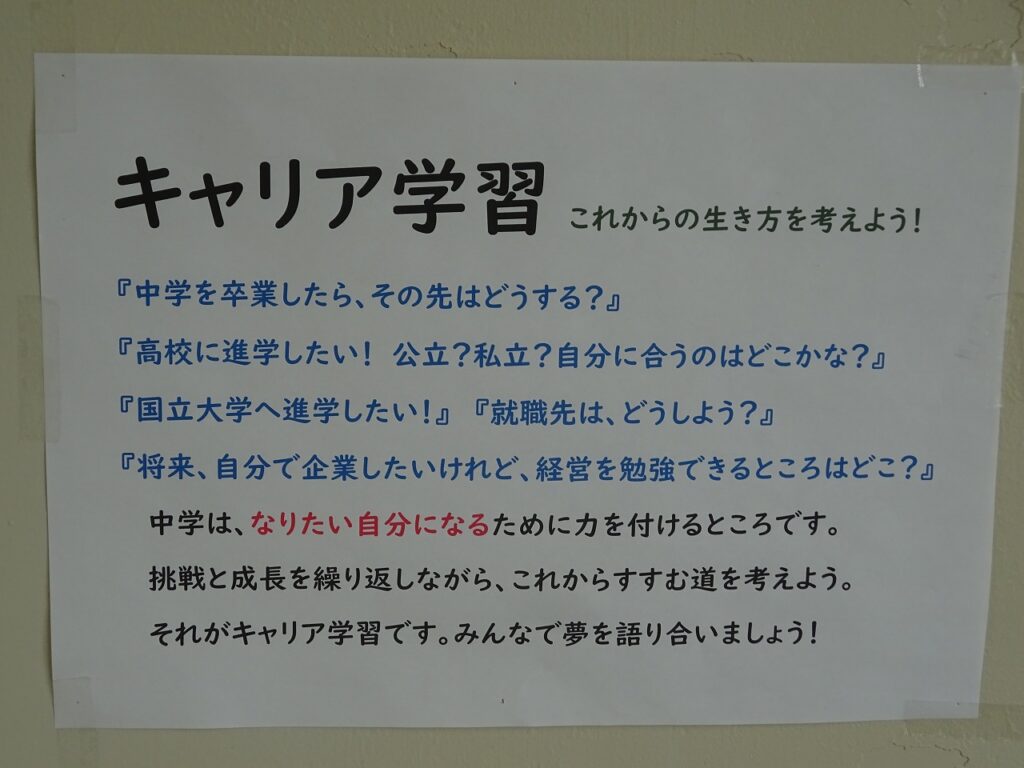 キャリア学習 これからの生き方を考えよう！
『中学を卒業したら、その先はどうする？』
『高校に進学したい！ 公立？私立？自分に合うのはどこかな？』
『国立大学へ進学したい！』 『就職先は、どうしよう？』
『将来、自分で企業したいけれど、経営を勉強できるところはどこ？』
中学は、なりたい自分になるために力を付けるところです。
挑戦と成長を繰り返しながら、これからすすむ道を考えよう。
それがキャリア学習です。みんなで夢を語り合いましょう！